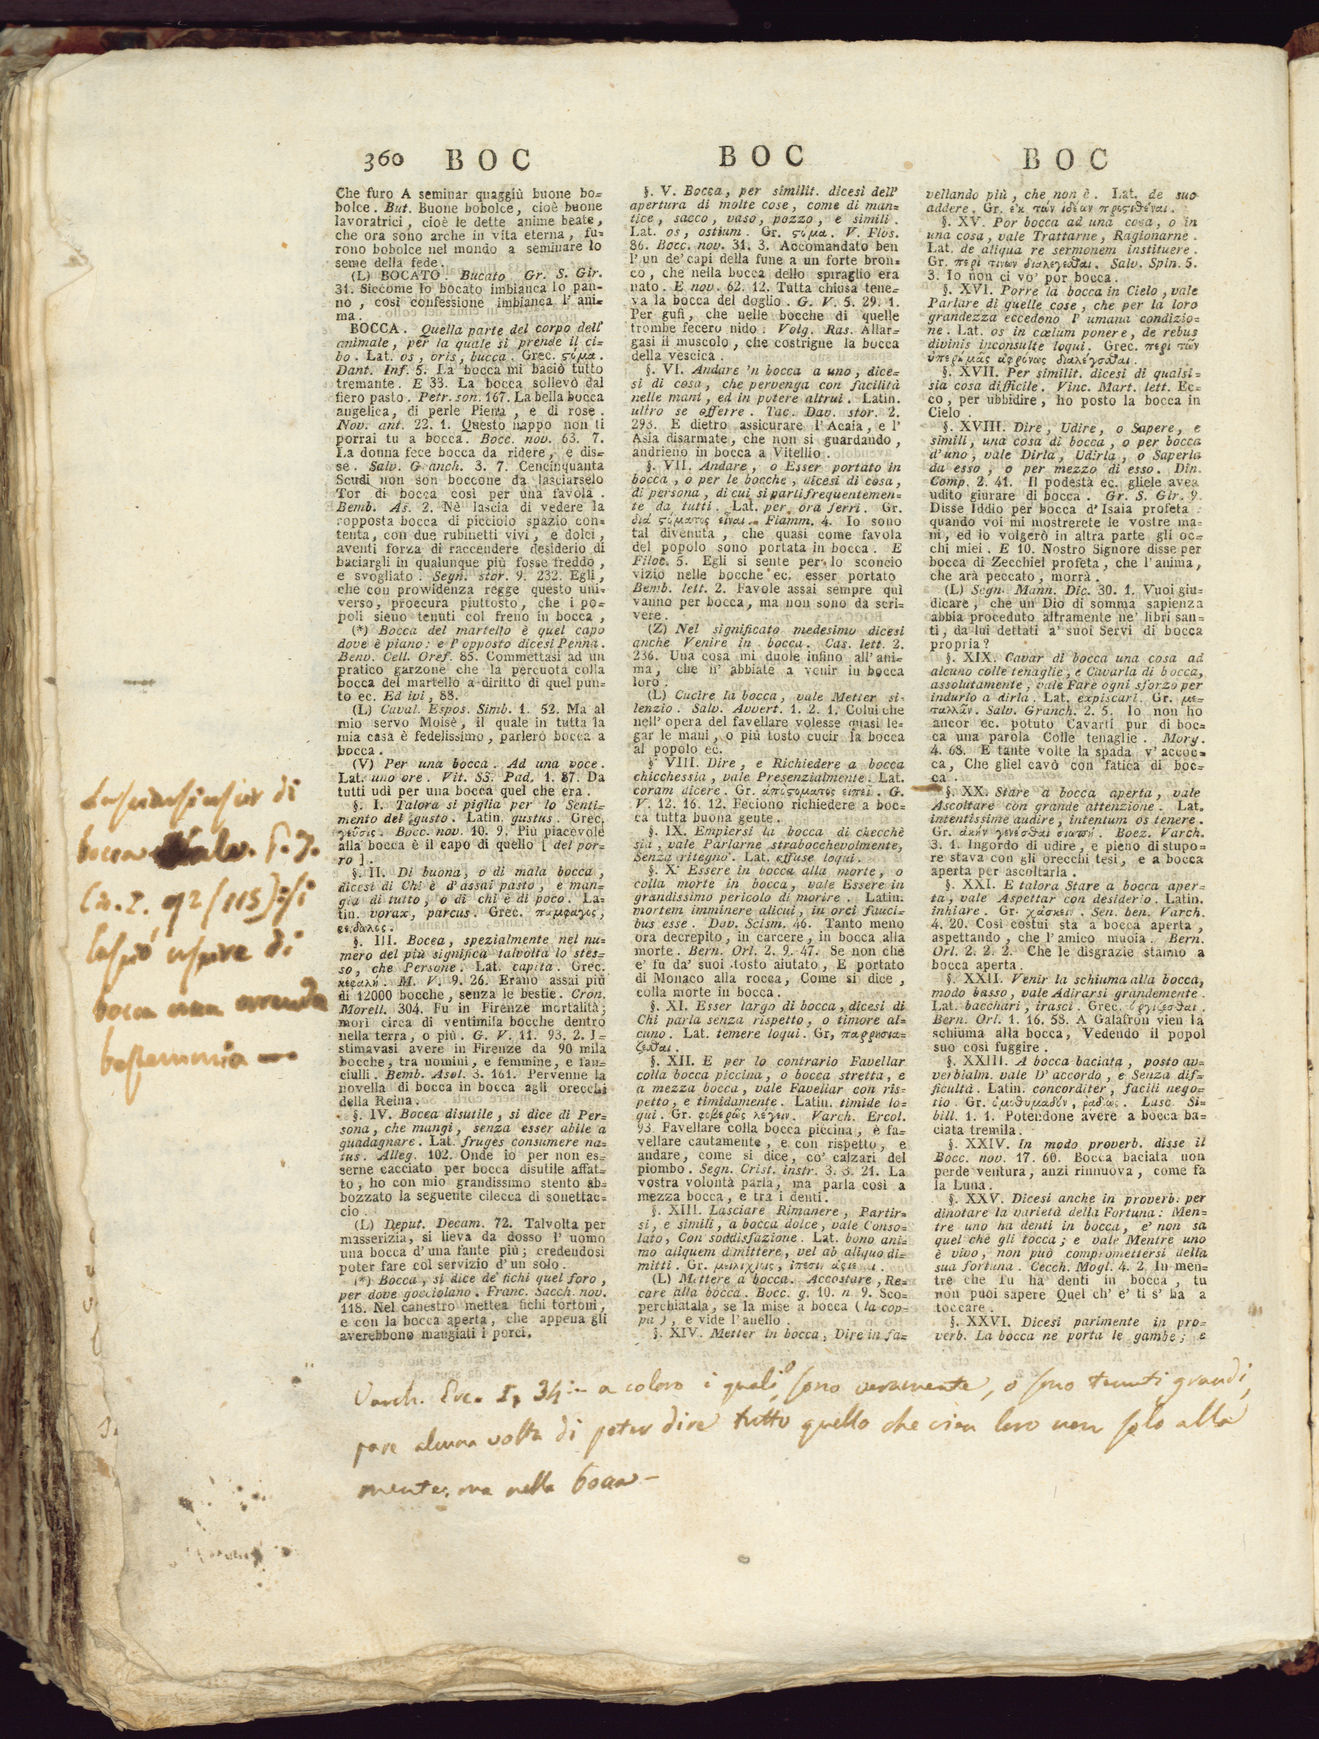 360 BOC
BOC
BOC
Che furo A seminar quaggiù buone bo=
bolce . But. Buone bobolce, cioè buone
lavoratrici, cioè le dette anime beate,
che ora sono arche in vita eterna, fu=
rono bobolce nel mondo a seminare lo
seme della fede.
(L) BOCATO. Bucato Gr. S. Gir.
31. Siccome lo bocato imbianca lo pan=
no, così confessione imbianca l' ani=
ma.
BOCCA. Quella parte del corpo dell'
animale, per la quale si prende il ci=
bo. Lat. os, oris, bucca. Grec. ςόμα.
Dant. Inf. 5. La bocca mi baciò tutto
tremante. E 33. La bocca sollevò dal
fiero pasto. Petr. son. 167. La bella bocca
angelica, di perle Piena, e di rose.
Nov. ant. 22. 1. Questo nappo non ti
porrai tu a bocca. Bocc. nov. 63. 7.
La donna fece bocca da ridere, e dis=
se. Salv. Granch. 3. 7. Cencinquanta
Scudi non son boccone da lasciarselo
Tor di bocca così per una favola.
Bemb. As. 2. Nè lascia di vedere la
sopposta bocca di picciolo spazio con=
tenta, con due rubinetti vivi, e dolci,
aventi forza di raccendere desiderio di
baciargli in qualunque più fosse freddo,
e svogliato. Segn. stor. 9. 232. Egli,
che con provvidenza regge questo uni=
verso, proccura piuttosto, che i po=
poli sieno tenuti col freno in bocca,
(*) Bocca del martello è quel capo
dove è piano: e l'opposto dicesi Penna.
Benv. Cell. Oref. 85. Commettasi ad un
pratico garzone che la percuota colla
bocca del martello a diritto di quel pun=
to ec. Ed ivi, 88.
(L) Caval. Espos. Simb. 1. 52. Ma al
mio servo Moisè, il quale in tutta la
mia casa è fedelissimo, parlerò bocca a
bocca.
(V) Per una bocca. Ad una voce.
Lat. uno ore. Vit. SS. Pad. 1. 87. Da
tutti udì per una bocca quel che era.
§. I. Talora si piglia per lo Senti=
mento del gusto. Latin. gustus. Grec.
γεῦσις. Bocc. nov. 10. 9. Più piacevole
alla bocca è il capo di quello [ del por=
ro ].
§. II. Di buona, o di mala bocca,
dicesi di Chi è d'assai pasto, e man=
gia di tutto, o di chi è di poco. La=
tin. vorax, parcus. Grec. παμφάγος,
φειδωλός.
§. III. Bocca, spezialmente nel nu=
mero del più significa talvolta lo stes=
so, che Persone. Lat. capita. Grec.
κεφαλή. M. V. 9. 26. Erano assai più
di 12000 bocche, senza le bestie. Cron.
Morell. 304. Fu in Firenze mortalità;
morì circa di ventimila bocche dentro
nella terra, o più. G. V. 11. 93. 2. I=
stimavasi avere in Firenze da 90 mila
bocche, tra uomini, e femmine, e fan=
ciulli. Bemb. Asol. 3. 161. Pervenne la
novella di bocca in bocca agli orecchi
della Reina.
§. IV. Bocca disutile, si dice di Per=
sona, che mangi, senza esser abile a
guadagnare. Lat. fruges consumere na=
tus. Alleg. 102. Onde io per non es=
serne cacciato per bocca disutile affat=
to, ho con mio grandissimo stento ab=
bozzato la seguente cilecca di sonettac=
cio.
(L) Deput. Decam. 72. Talvolta per
masserizia, si lieva da dosso l' uomo
una bocca d'una fante più; credendosi
poter fare col servizio d'un solo.
(*) Bocca, si dice de' fichi quel foro,
per dove gocciolano. Franc. Sacch. nov.
118. Nel canestro mettea fichi tortoni,
e con la bocca aperta, che appena gli
averebbono mangiati i porci.
§. V. Bocca, per similit. dicesi dell'
apertura di molte cose, come di man=
tice, sacco, vaso, pozzo, e simili.
Lat. os, ostium. Gr. ςόμα. V. Flos.
86. Bocc. nov. 31. 3. Accomandato ben
l'un de' capi della fune a un forte bron=
co, che nella bocca dello spiraglio era
nato. E nov. 62. 12. Tutta chiusa tene=
va la bocca del doglio. G. V. 5. 29. 1.
Per gufi, che nelle bocche di quelle
trombe fecero nido. Volg. Ras. Allar=
gasi il muscolo, che costrigne la bocca
della vescica.
§. VI. Andare 'n bocca a uno, dice=
si di cosa, che pervenga con facilità
nelle mani, ed in potere altrui. Latin.
ultro se offerre. Tac. Dav. stor. 2.
293. E dietro assicurare l'Acaia, e l'
Asia disarmate, che non si guardando,
andrieno in bocca a Vitellio.
§. VII. Andare, o Esser portato in
bocca, o per le bocche, dicesi di cosa,
di persona, di cui si parli frequentemen=
te da tutti. Lat. per ora ferri. Gr.
διά ςόματος εἶναι. Fiamm. 4. Io sono
tal divenuta, che quasi come favola
del popolo sono portata in bocca. E
Filoc. 5. Egli si sente per lo sconcio
vizio nelle bocche ec. esser portato
Bemb. lett. 2. Favole assai sempre quì
vanno per bocca, ma non sono da scri=
vere.
(Z) Nel significato medesimo dicesi
anche Venire in bocca. Cas. lett. 2.
236. Una cosa mi duole infino all'ani=
ma, che n' abbiate a venir in bocca
loro.
(L) Cucire la bocca, vale Metter si=
lenzio. Salv. Avvert. 1. 2. 1. Colui che
nell' opera del favellare volesse quasi le=
gar le mani, o più tosto cucir la bocca
al popolo ec.
§. VIII. Dire, e Richiedere a bocca
chicchessia, vale Presenzialmente. Lat.
coram dicere. Gr. ἀπὸ ςόματος εἰπεῖν. G.
V. 12. 16. 12. Feciono richiedere a boc=
ca tutta buona gente.
§. IX. Empiersi la bocca di checchè
sia, vale Parlarne strabocchevolmente,
Senza ritegno. Lat. effuse loqui.
§. X. Essere in bocca alla morte, o
colla morte in bocca, vale Essere in
grandissimo pericolo di morire. Latin.
mortem imminere alicui, in orci fauci=
bus esse. Dav. Scism. 46. Tanto meno
ora decrepito, in carcere, in bocca alla
morte. Bern. Orl. 2. 9. 47. Se non che
e' fu da' suoi tosto aiutato, E portato
di Monaco alla rocca, Come si dice,
colla morte in bocca.
§. XI. Esser largo di bocca, dicesi di
Chi parla senza rispetto, o timore al=
cuno. Lat. temere loqui. Gr. παρρησιά=
ζεσθαι.
§. XII. E per lo contrario Favellar
colla bocca piccina, o bocca stretta, e
a mezza bocca, vale Favellar con ris=
petto, e timidamente. Latin. timide lo=
qui. Gr. φοβερῶς λέγειν. Varch. Ercol.
93. Favellare colla bocca piccina, è fa=
vellare cautamente, e con rispetto, e
andare, come si dice, co' calzari del
piombo. Segn. Crist. instr. 3. 3. 21. La
vostra volontà parla, ma parla così a
mezza bocca, e tra i denti.
§. XIII. Lasciare Rimanere, Partir=
si, e simili, a bocca dolce, vale Conso=
lato, Con soddisfazione. Lat. bono ani=
mo aliquem dimittere, vel ab aliquo di=
mitti. Gr.
(L) Mettere a bocca. Accostare, Re=
care alla bocca. Bocc. g. 10. n 9. Sco=
perchiatala, se la mise a bocca (la cop=
pa), e vide l'anello.
§. XIV. Metter in bocca, Dire in fa=
vellando più, che non è. Lat. de suo
addere. Gr. ἐκ τῶν ἰδίων προςτιθέναι.
§. XV. Por bocca ad una cosa, o in
una cosa, vale Trattarne, Ragionarne.
Lat. de aliqua re sermonem instituere.
Gr. περὶ τινων διαλέγεσθαι. Salv. Spin. 5.
3. Io non ci vo' por bocca.
§. XVI. Porre la bocca in Cielo, vale
Parlare di quelle cose, che per la loro
grandezza eccedono l' umana condizio=
ne. Lat. os in cœlum ponere, de rebus
divinis inconsulte loqui. Grec. περὶ τῶν
ὑπὲρ ἡμᾶς ἀφρόνως διαλέγεσθαι.
§. XVII. Per similit. dicesi di qualsi=
sia cosa difficile. Vinc. Mart. lett. Ec=
co, per ubbidire, ho posto la bocca in
Cielo.
§. XVIII. Dire, Udire, o Sapere, e
simili, una cosa di bocca, o per bocca
d'uno, vale Dirla, Udirla, o Saperla
da esso, o per mezzo di esso. Din.
Comp. 2. 41. Il podestà ec. gliele avea
udito giurare di bocca. Gr. S. Gir. 9.
Disse Iddio per bocca d'Isaia profeta:
quando voi mi mostrerete le vostre ma=
ni, ed io volgerò in altra parte gli oc=
chi miei. E 10. Nostro Signore disse per
bocca di Zecchiel profeta, che l'anima,
che arà peccato, morrà.
(L) Segn. Mann. Dic. 30. 1. Vuoi giu=
dicare, che un Dio di somma sapienza
abbia proceduto altramente ne' libri san=
ti, da lui dettati a' suoi Servi di bocca
propria?
§. XIX. Cavar di bocca una cosa ad
alcuno colle tenaglie, e Cavarla di bocca,
assolutamente, vale Fare ogni sforzo per
indurlo a dirla. Lat. expiscari. Gr. με=
ταλλᾶν. Salv. Granch. 2. 5. Io non ho
ancor ec. potuto Cavarti pur di boc=
ca una parola Colle tenaglie. Morg.
4. 68. E tante volte la spada v' accoc=
ca, Che gliel cavò con fatica di boc=
ca.
§. XX. Stare a bocca aperta, vale
Ascoltare con grande attenzione. Lat.
intentissime audire, intentum os tenere.
Gr. ἀκὴν γενέσθαι σιωπῇ. Boez. Varch.
3. 1. Ingordo di udire, e pieno di stupo=
re stava con gli orecchi tesi, e a bocca
aperta per ascoltarla.
§. XXI. E talora Stare a bocca aper=
ta, vale Aspettar con desiderio. Latin.
inhiare. Gr. χάσκειν. Sen. ben. Varch.
4. 20. Così costui sta a bocca aperta,
aspettando, che l'amico muoia. Bern.
Orl. 2. 2. 2. Che le disgrazie stanno a
bocca aperta.
§. XXII. Venir la schiuma alla bocca,
modo basso, vale Adirarsi grandemente.
Lat. bacchari, irasci. Grec. ὀργίζεσθαι.
Bern. Orl. 1. 16. 58. A Galafron vien la
schiuma alla bocca, Vedendo il popol
suo così fuggire.
§. XXIII. A bocca baciata, posto av=
verbialm. vale D' accordo, e Senza dif=
ficultà. Latin. concorditer, facili nego=
tio. Gr. ὁμοθυμαδόν, ῥαδίως. Lasc. Si=
bill. 1. 1. Potendone avere a bocca ba=
ciata tremila.
§. XXIV. In modo proverb. disse il
Bocc. nov. 17. 60. Bocca baciata non
perde ventura, anzi rinnuova, come fa
la Luna.
§. XXV. Dicesi anche in proverb. per
dinotare la varietà della Fortuna: Men=
tre uno ha denti in bocca, e' non sa
quel che gli tocca; e vale Mentre uno
è vivo, non può compromettersi della
sua fortuna. Cecch. Mogl. 4. 2. In men=
tre che tu ha' denti in bocca, tu
non puoi sapere Quel ch' e' ti s' ha a
toccare.
§. XXVI. Dicesi parimente in pro=
verb. La bocca ne porta le gambe; e
di
bocca
92 (115): si
lasciò uscire di
bocca una orrenda
bestemmia
Varch. Erc. I, 34:- a coloro i quali, o sono veramente, o sono tenuti grandi,
pare alcuna volta di poter dire tutto quello che vien loro non solo alla
mente, ma nella bocca-